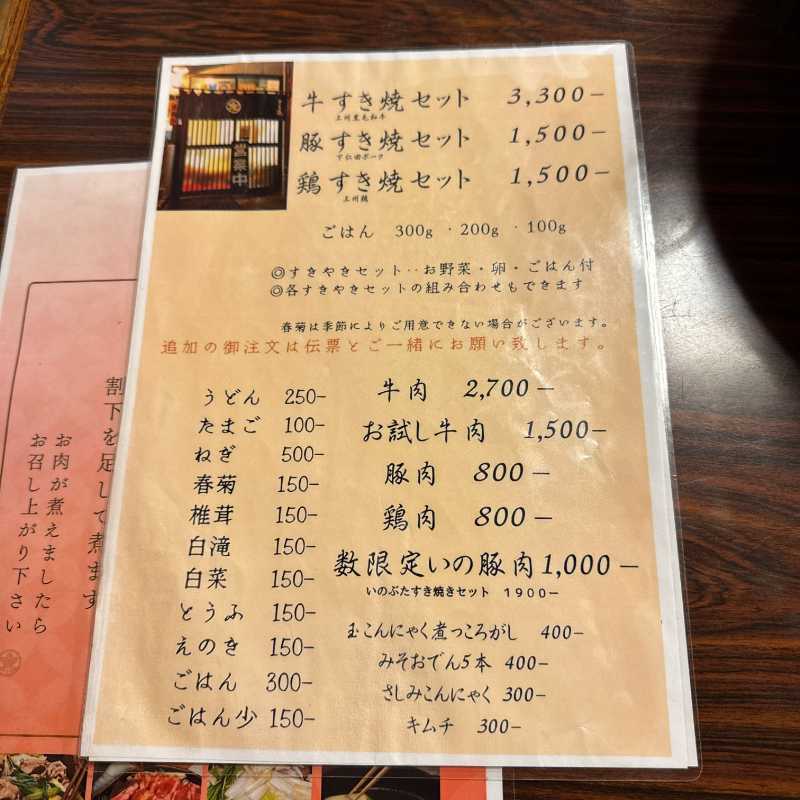 営業中
牛すき焼セット 3,300-
上州黒毛和牛
豚すき焼セット 1,500-
下仁田ポーク
鶏すき焼セット 1,500-
上州鶏
ごはん 300g ・200g ・100g
◎すきやきセット‥お野菜・卵・ごはん付
◎各すきやきセットの組み合わせもできます
春菊は季節によりご用意できない場合がございます。
追加の御注文は伝票とご一緒にお願い致します。
うどん 250-
たまご 100-
ねぎ 500-
春菊 150-
椎茸 150-
白滝 150-
白菜 150-
とうふ 150-
えのき 150-
ごはん 300-
ごはん少 150-
牛肉 2,700-
お試し牛肉 1,500-
豚肉 800-
鶏肉 800-
数限定いの豚肉1,000-
いのぶたすき焼きセット 1900-
玉こんにゃく煮っころがし 400-
みそおでん5本 400-
さしみこんにゃく 300-
キムチ 300-
割下を足して煮ます
お肉が煮えましたら
お召し上がり下さい